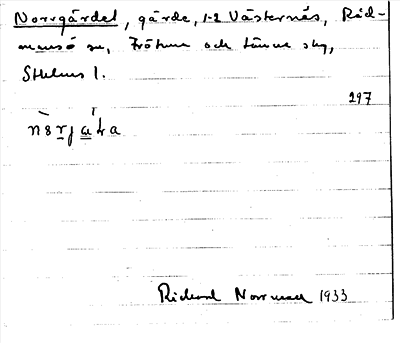 Norrgärdet, gärde, 1-2 Västernäs, Råd-
mansö sn, Frötuna och Länna skg,
Sthlms l.
297
Richard Norrman 1933